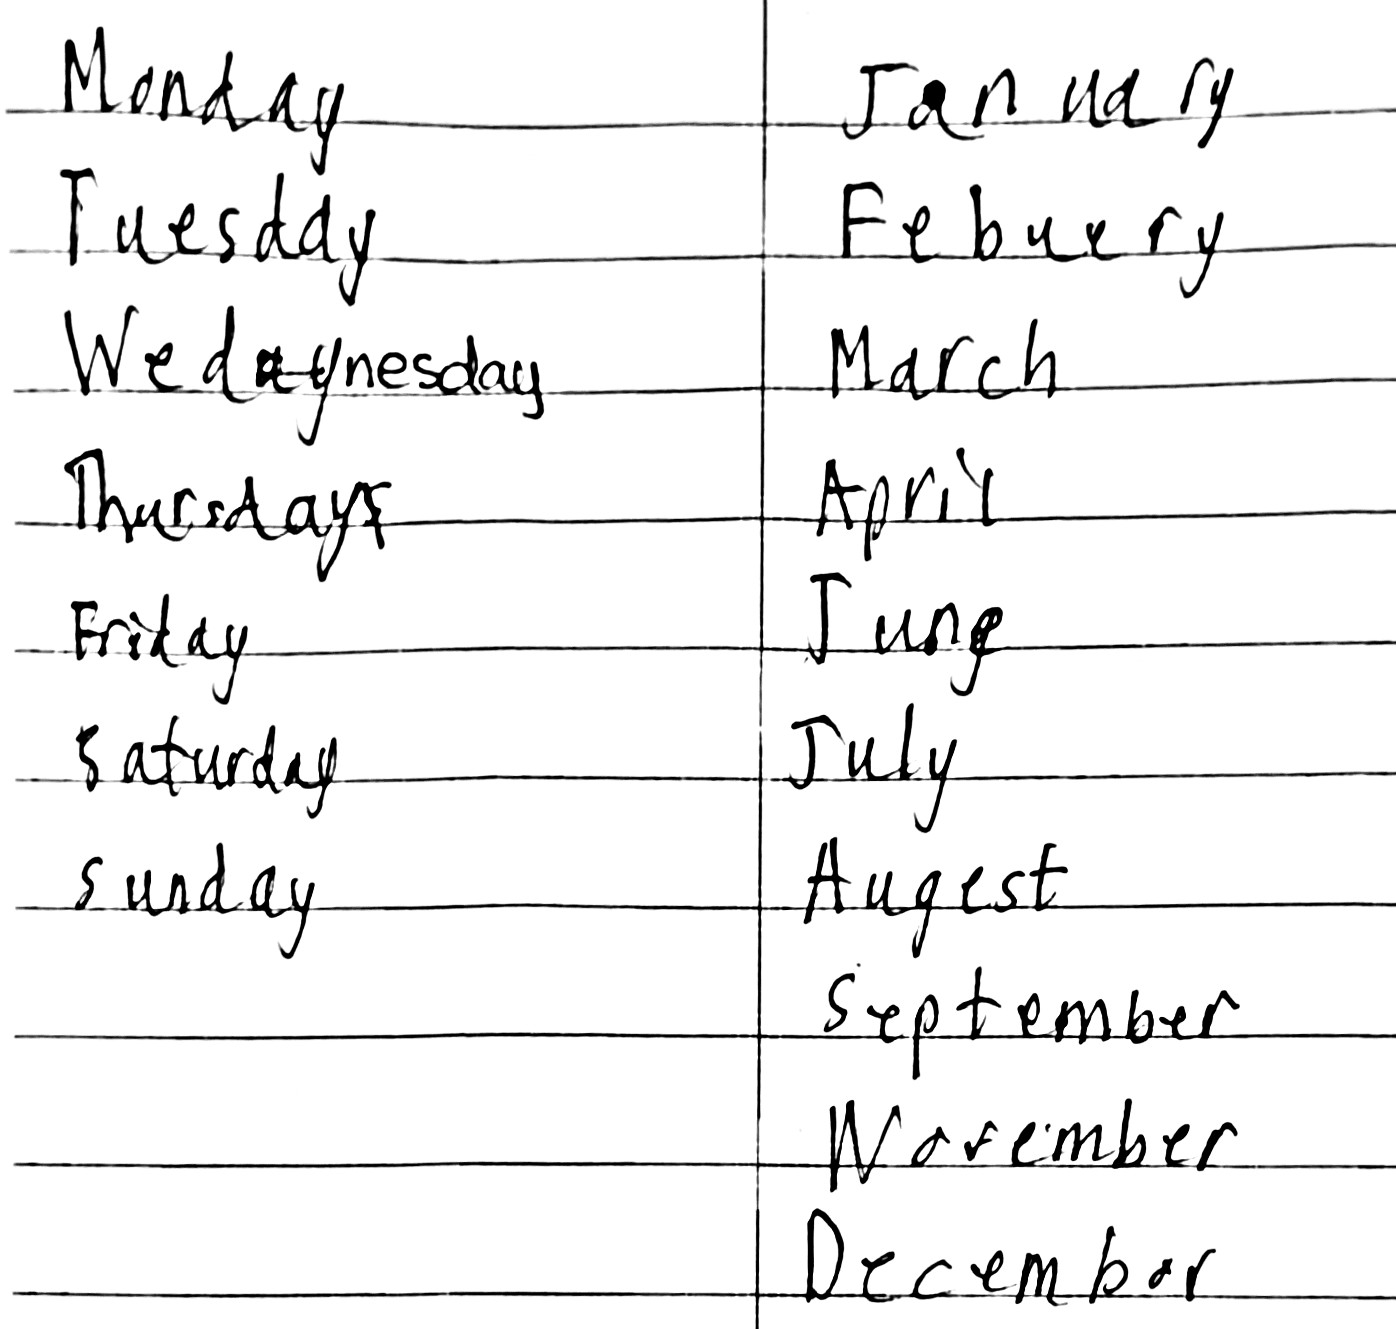 Monday
Tuesday
Wedaynesday
Thursdays
Friday
saturday
sunday
January
Febuery
March
April
June
July
Augest
September
November
Decembor